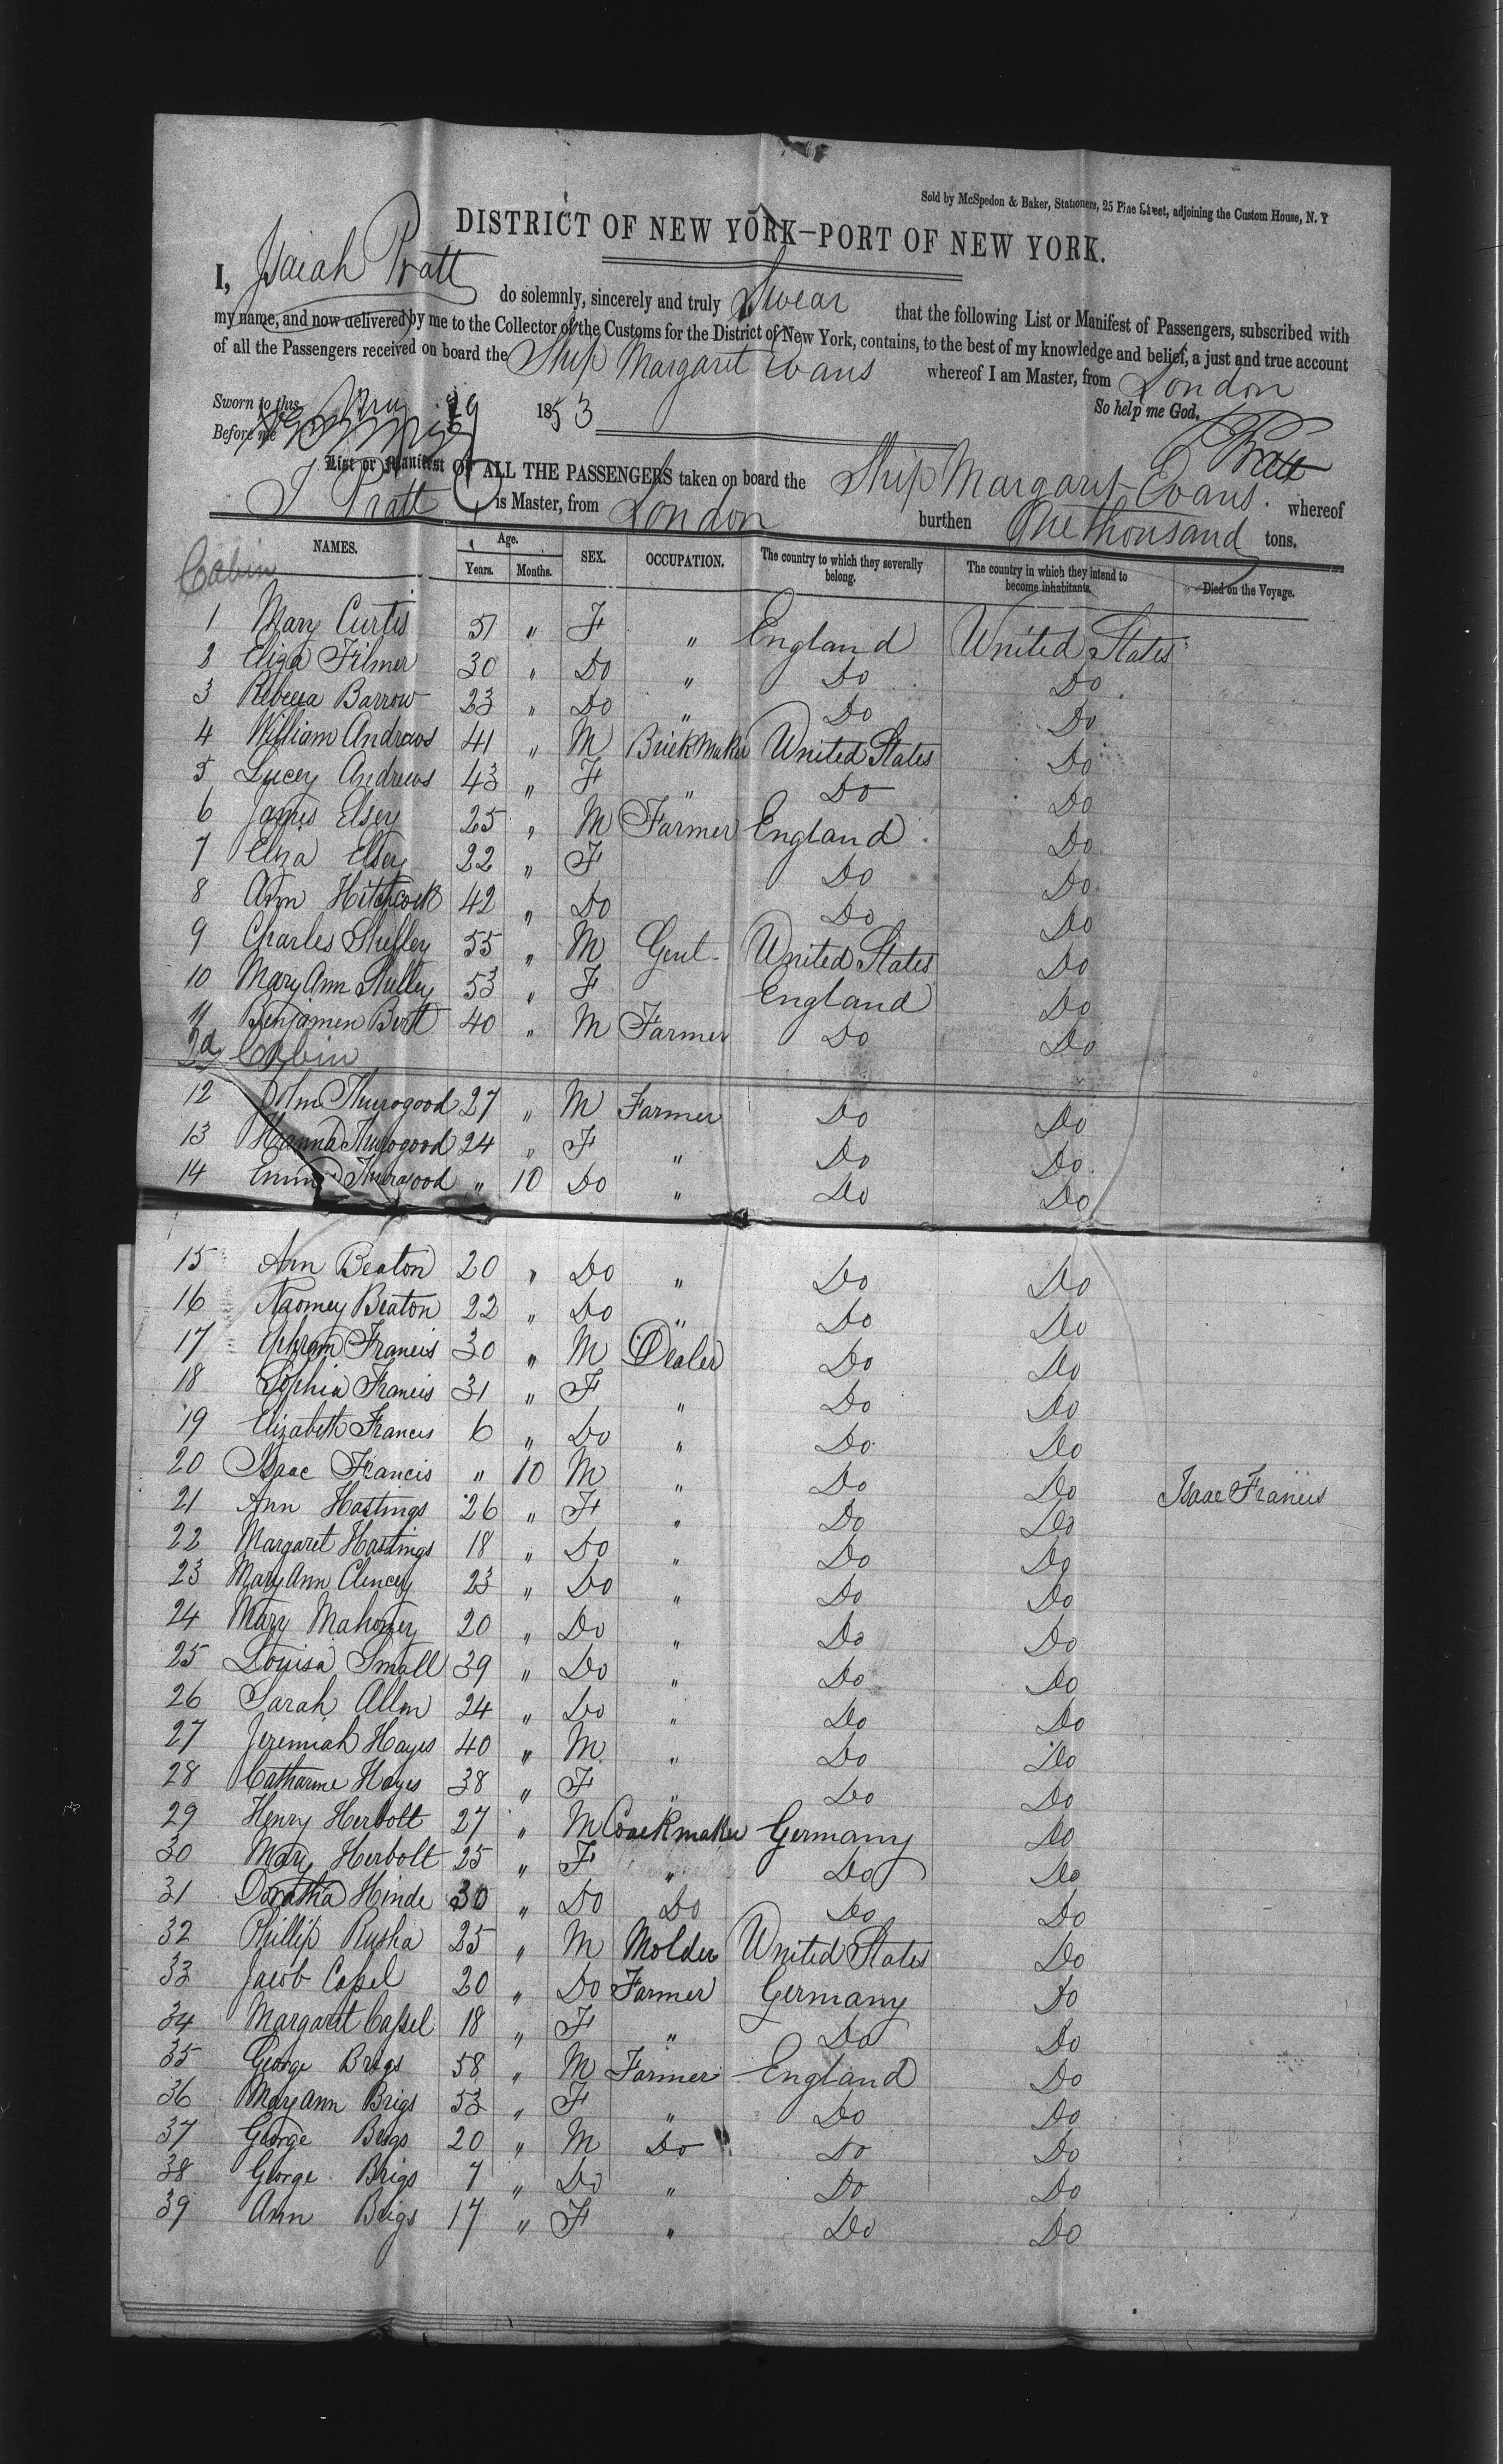 Sold by McSpedon & Baker, Stationers, 25 Pine Street, adjoining the Custom House, N. Y
DISTRICT OF NEW YORK—PORT OF NEW YORK.
I, Isaiah Pratt do solemnly, sincerely and truly Swear that the following List or Manifest of Passengers, subscribed with
my name, and now delivered by me to the Collector of the Customs for the District of New York, contains, to the best of my knowledge and belief, a just and true account
of all the Passengers received on board the Ship Margaret Evans whereof I am Master, from London
Sworn to this 19 1853 So help me God.
Before me I Pratt
List or Manifest OF ALL THE PASSENGERS taken on board the Ship Margaret Evans. whereof
I Pratt is Master, from London burthen One thousand tons.
NAMES. Age. Years. Months. SEX. OCCUPATION. The country to which they severally belong. The country in which they intend to become inhabitants. Died on the Voyage.
Cabin
1 Mary Curtis 51 " F " England United States
2 Eliza Filmer 30 " Do " Do Do
3 Rebecca Barrow 23 " Do " Do Do
4 William Andrews 41 " M Brickmaker United States Do
5 Lucey Andrews 43 " F " Do Do
6 James Elsey 25 " M Farmer England Do
7 Eliza Elsey 22 " F Do Do
8 Ann Hitchcock 42 " Do Do Do
9 Charles 55 " M Gent United States Do
10 Mary Ann 53 " F England Do
11 Benjamen Bert 40 " M Farmer Do Do
2d Cabin
12 Thurogood 27 " M Farmer Do Do
13 Hanna Thurogood 24 " F " Do Do
14 Emma Thurogood " 10 Do " Do Do
15 Ann Beaton 20 " Do " Do Do
16 Naomey Beaton 22 " Do " Do Do
17 Francis 30 " M Dealer Do Do
18 Sophia Francis 31 " F " Do Do
19 Elizabeth Francis 6 " Do " Do Do
20 Isaac Francis " 10 M " Do Do Isaac Francis
21 Ann Hastings 26 " F " Do Do
22 Margaret Hastings 18 " Do " Do Do
23 Mary Ann Clencey 23 " Do " Do Do
24 Mary Mahoney 20 " Do " Do Do
25 Louisa Small 39 " Do " Do Do
26 Sarah Allen 24 " Do " Do Do
27 Jeremiah Hayes 40 " M " Do Do
28 Catharine Hayes 38 " F " Do Do
29 Henry Herbolt 27 " M Coackmaker Germany Do
30 Mary Herbolt 25 " F " Do Do
31 Doratha Hinde 30 " Do Do Do Do
32 Phillip Rusha 25 " M Molder United States Do
33 Jacob Cassel 20 " Do Farmer Germany Do
34 Margaret Cassel 18 " F " Do Do
35 George Brigs 58 " M Farmer England Do
36 Mary Ann Brigs 53 " F " Do Do
37 George Brigs 20 " M Do Do Do
38 George Brigs 7 " Do " Do Do
39 Ann Brigs 17 " F " Do Do